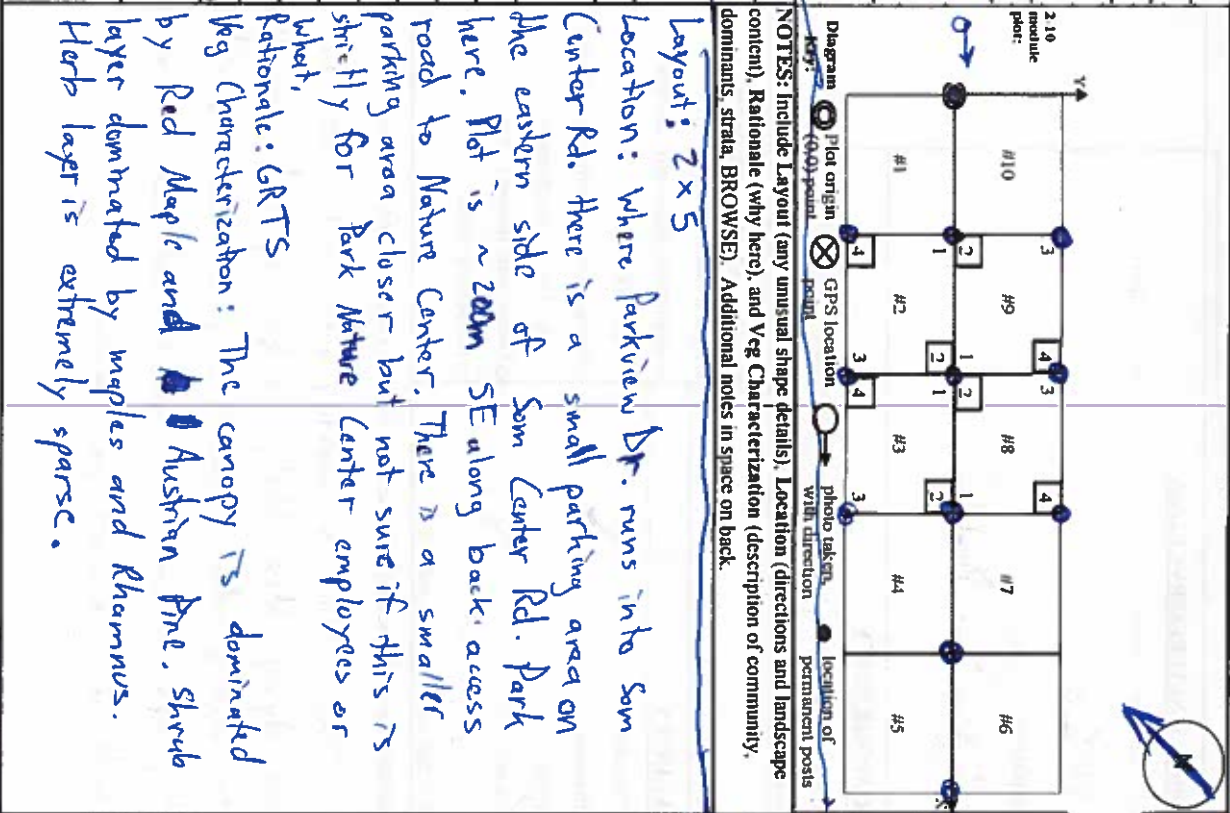 2:10
module
plot:
Y
X
N
#10
#9
#8
#7
#6
#1
#2
#3
#4
#5
3
4
3
4
2
1
2
1
1
2
1
2
4
3
4
3
Diagram
Key:
Plot origin
(0,0) point
GPS location
point
photo taken,
with direction
location of
permanent posts
NOTES: Include Layout (any unusual shape details), Location (directions and landscape
content), Rationale (why here), and Veg Characterization (description of community,
dominants, strata, BROWSE). Additional notes in space on back.
Layout: 2x5
Location: Where Parkview Dr. runs into Som
Center Rd. there is a small parking area on
the eastern side of Som Center Rd. Park
here. Plot is ~200m SE along back access
road to Nature Center. There is a smaller
parking area closer but not sure if this is
strictly for Park Nature Center employees or
what.
Rationale: GRTS
Veg Characterization: The canopy is dominated
by Red Maple and Austrian Pine. Shrub
layer dominated by maples and Rhamnus.
Herb layer is extremely sparse.